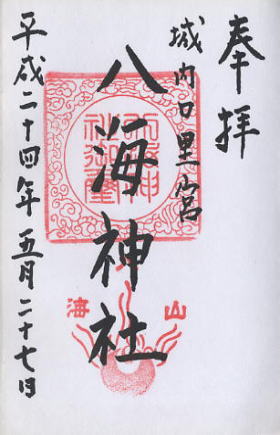 奉拝
城内口里宮
八海神社
平成二十四年五月二十七日
山海